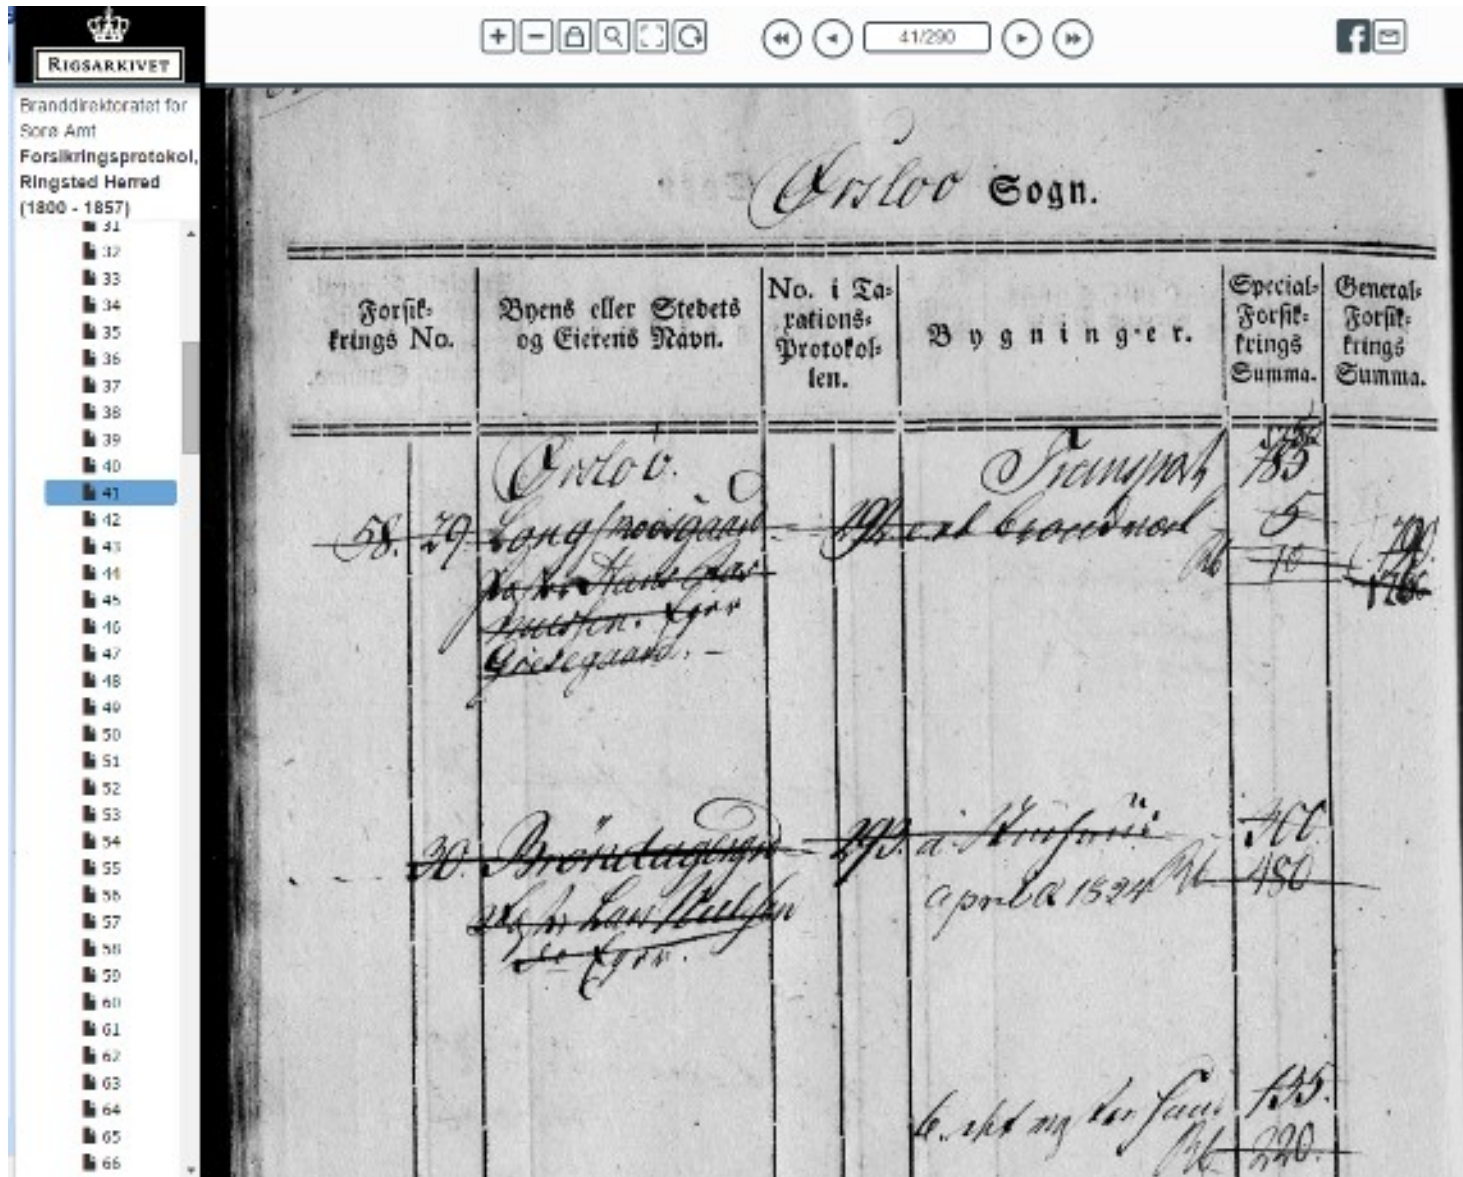 RIGSARKIVET
41/290
Branddirektoratet for
Sorø Amt
Forsikringsprotokol,
Ringsted Herred
(1800 - 1857)
31
32
33
34
35
36
37
38
39
40
41
42
43
44
45
46
47
48
49
50
51
52
53
54
55
56
57
58
59
60
61
62
63
64
65
66
Ørsløv Sogn.
Forsik-
krings No.
Byens eller Stedets
og Eierens Navn.
No. i Ta-
xations-
Protokol-
len.
Bygninger.
Special-
Forsik-
krings
Summa.
General-
Forsik-
krings
Summa.
Ørsløv. Transport 785
58. 29. 292 5 790.
Rb 10
Giesegaard.
30. 293. a. 300
april 1824 Rb 480
Lars Nielsen
b. 135.
Rb 220.